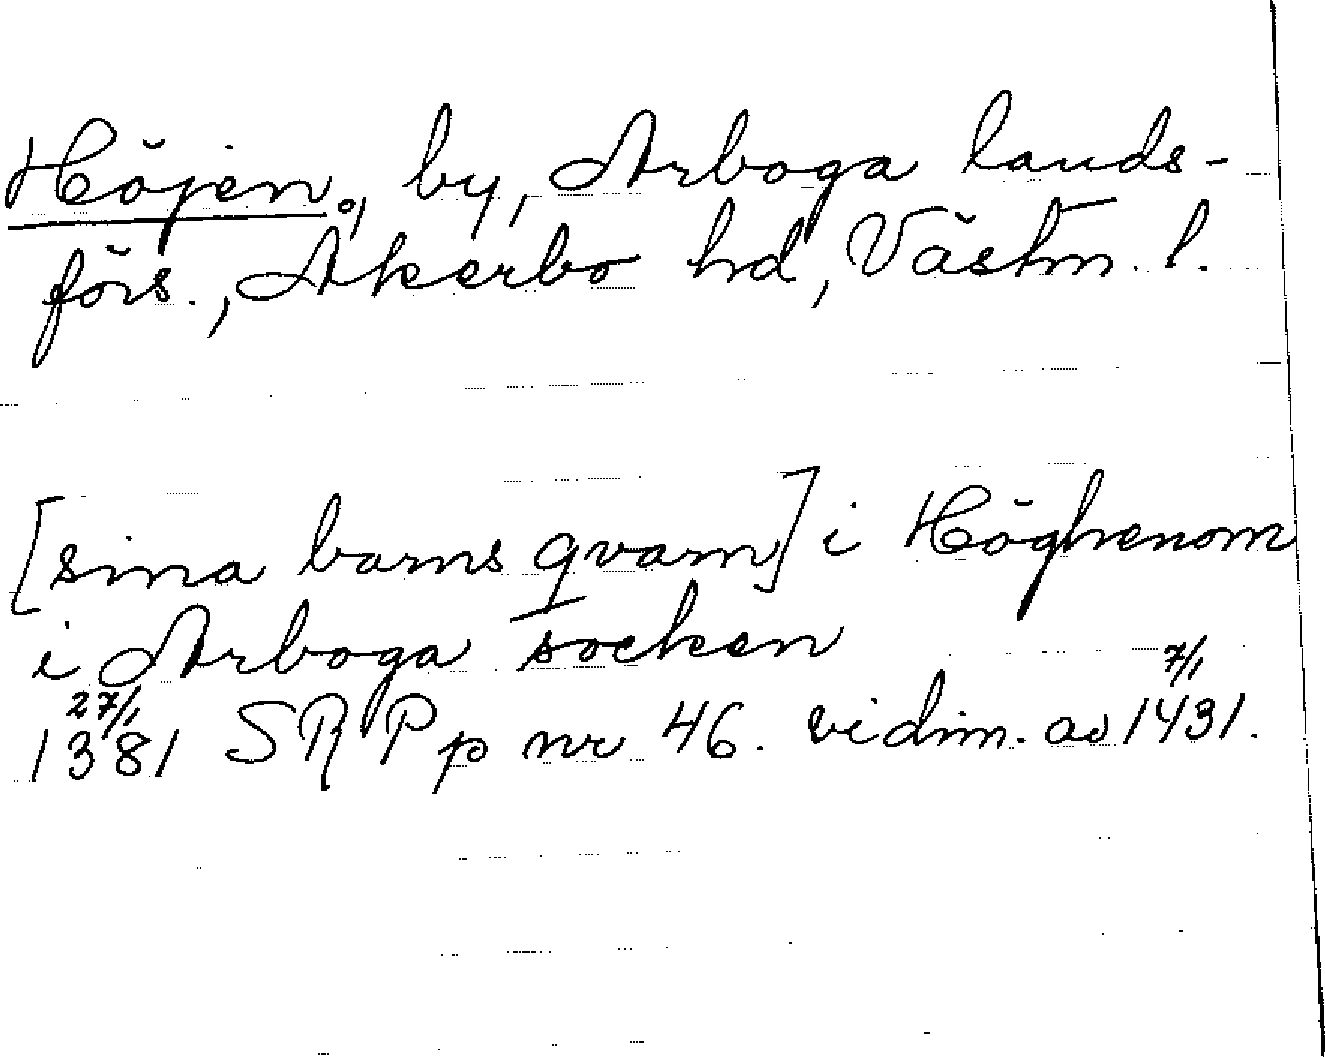 Höjen, by, Arboga lands-
förs., Åkerbo hd, Västm. l.
[sina barns qvarn] i Höghenom
i Arboga socken
27/1 1381 SRPp nr 46. vidim. av 7/1 1431.